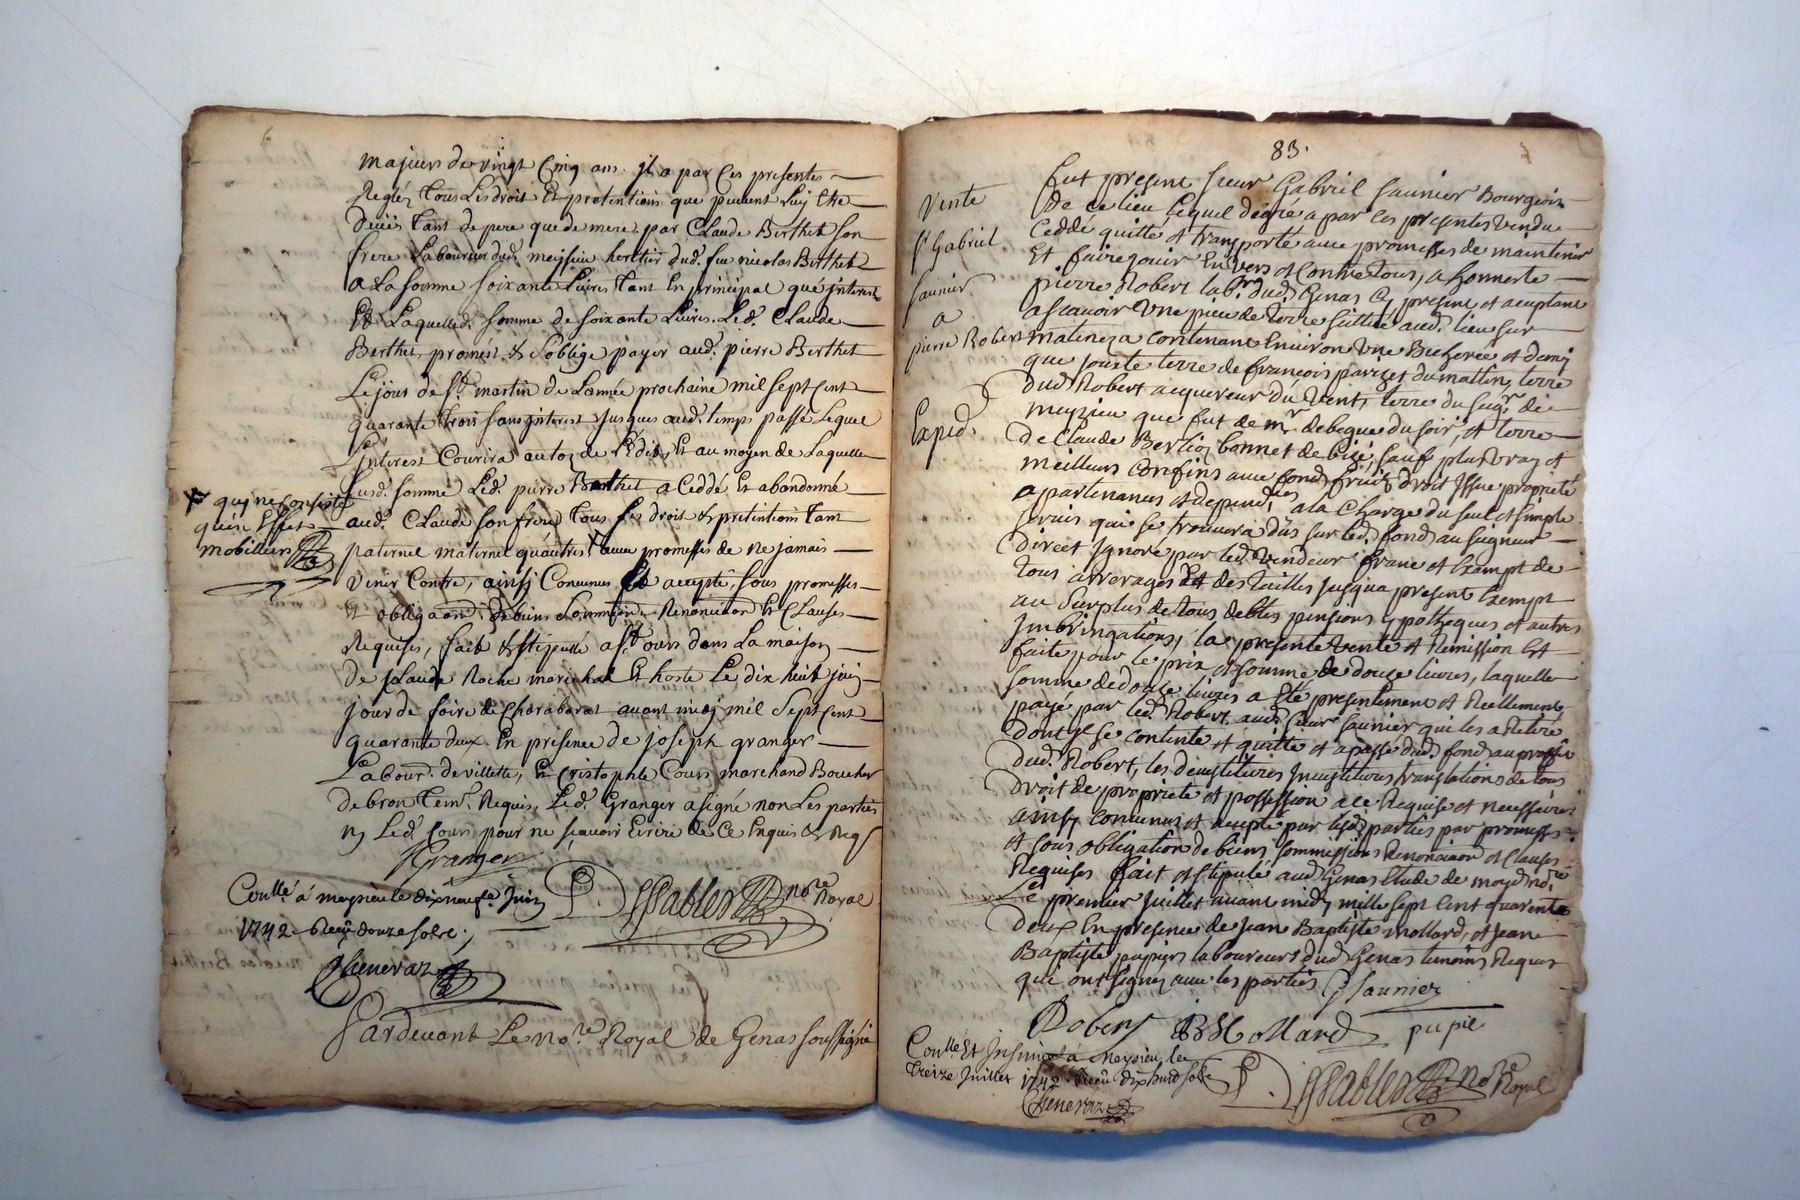 majeurs de vingt Cinq ans il a par Ces presentes
Reglé Tous Les droit Et pretentions que peuvent Luy Etre
Deües Tant de pere que de mere par Claude Berthet Son
frere Laboureur dud. meysieu heritier dud. feu nicolas Berthet
a La Somme soixante Livres Tant En principal que jnterest
Laquelle d. Somme de soixante Livres Led. Claude
Berthet promést & S'oblige payer aud. pierre Berthet
Le jour de st. martin de Lannée prochaine mil sept cent
quarante trois sans jnterest jusques aud. temps passé Lequel
L'jnterest Courira au toz de L'Edit, Et au moyen de Laquelle
susd. somme Led. pierre Berthet a Ceddé Et abandonné
aud. Claude son frere Tous ses droit & pretentions Tant
paternel maternel qu'autres + avec promesses de ne jamais
venir Contre, ainsy Convenu Et accepté, sous promesses
Et obligaon de biens soumission Renonciaon Et Clauses
Requises, fait & stipulé a st. ours dans La maison
de Claude Roche marechal Et hoste Le dix huit juin
jour de foire de Charabarat avant midy mil Sept Cent
quarante deux. En présence de joseph granger
Labour. de villette, Et Cristophle Cours marchand Boucher
de bron Tem. Requis, Led. Granger a signé non Les parties
ny Led. Cours pour ne sçavoir Ecrire de Ce Enquis & Req
+ qui ne Consiste
qu'en Effet
mobilliers
JGranger
Coullé á meysieu le dix neufe Juin
1742 Receu douze sols
Cheneraz
P. Sablers no.re Royal
Pardevant Le no.re Royal de Genas soussigné
83.
Vente
sr Gabriel
saunier
a
pierre Robert
Exped.
fut present sieur Gabriel saunier Bourgeois
De ce lieu lequel degré a par les presentes vendu
Ceddé quitte et transporté avec promesses de maintenir
Et faire jouir Envers et Contre tous, a honneste
pierre Robert lab.r dud. Genas Cy present et aceptant
ascavoir Une piece de terre scittuée aud. lieu sur
matineza contenant Environ Une Bicherée et demy
que jouste terre de francois parizet du mattin, terre
dud. Robert acquereur du Vent, terre du seigr. de
meyzieu que fut de mr. debeque du soir, et terre
de Claude Berlioz bonnet de bize, sauf plus vray et
meilleurs Confins avec fond, fruits droit Issue propriété
apartenances et dependces. a la Charge du seul et simple
servis qui se trouvera dûs sur led. fond au seigneur
Direct Ignoré par led. Vendeur franc et Exampt de
tous arrerages Et des tailles jusqu'a present Exempt
au Surplus de tous debtes pensions ypotheques et autres
Imbringations, la presente vente et Remission Est
faite pour le prix et somme de douze livres, laquelle
somme de douze livres a Eté presentement et Reellement
payé par led. Robert aud. sieur saunier qui les a Retiré
Dont Il se contente et quitte et a passé dud. fond au proffit
Dud. Robert, les devestitures Investitures translations de tous
Droit de propriete et possession a ce Requise et necessaires
ainsy convenus et accepté par lesd. parties par promesses
Et sous obligation de biens soumissions Renonciaon et Clauses
Requises fait et stipulé aud. Genas Etude de moyd. no.re
Le premier Juillet avant midy mille sept Cent quarente
Deux En presence de Jean Baptiste mollard, et Jean
Baptiste papier laboureurs dud. Genas temoins Requis
qui ont signez avec les parties Gsaunier
Robert JBMollard papie
Coullé Et Insinué a Meysieu le
treize Juillet 1742 Receu dixhuit sols
Cheneraz
P. Sablers no.re Royal